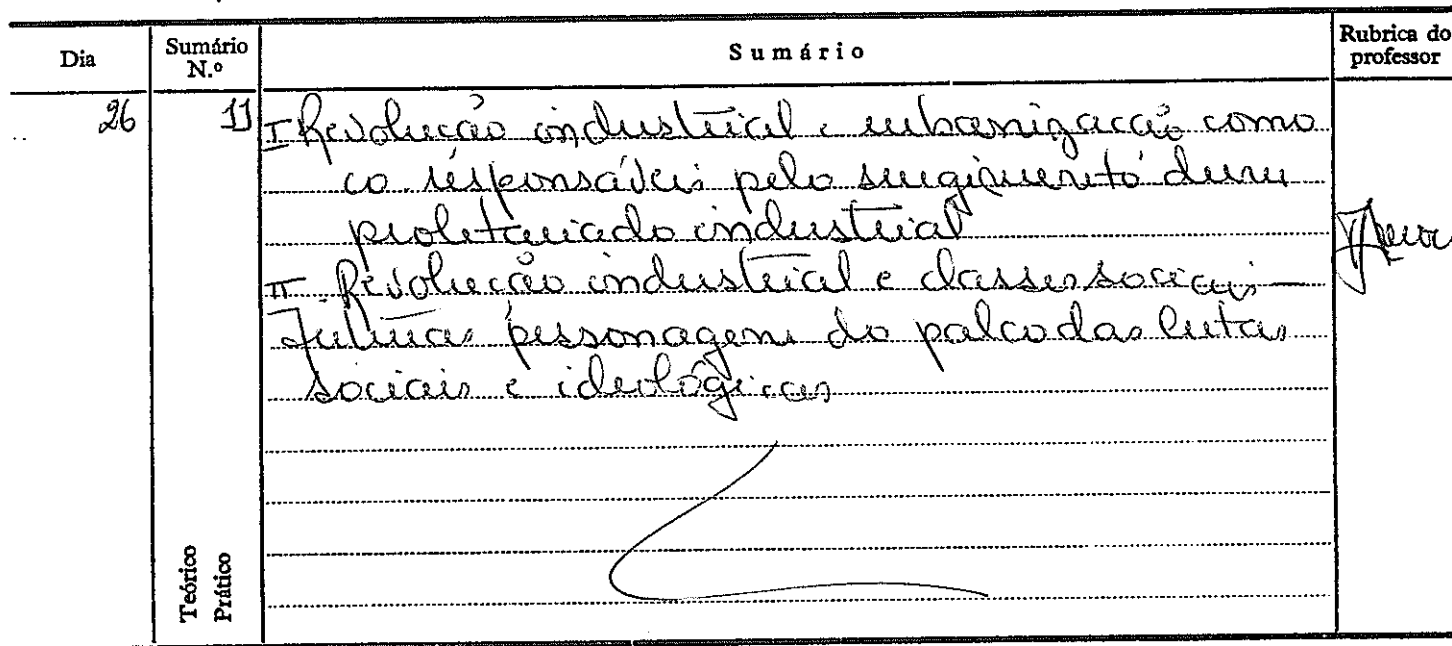 Dia Sumário N.º Sumário Rubrica do professor
26 11 I Revolução industrial e urbanização como
co responsáveis pelo surgimento dum
proletariado industrial
II. Revolução industrial e classes sociais —
futuras personagens do palco das lutas
sociais e ideológicas
Teórico
Prático